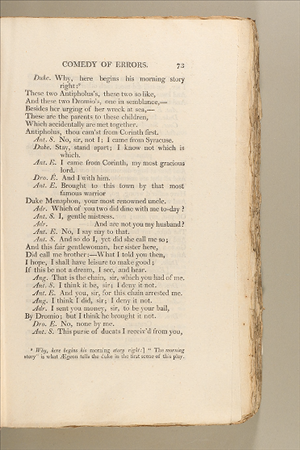 COMEDY OF ERRORS. 73
Duke. Why, here begins his morning story
right:⁶
These two Antipholus's, these two so like,
And these two Dromio's, one in semblance,—
Besides her urging of her wreck at sea,—
These are the parents to these children,
Which accidentally are met together.
Antipholus, thou cam'st from Corinth first.
Ant. S. No, sir, not I; I came from Syracuse.
Duke. Stay, stand apart; I know not which is
which.
Ant. E. I came from Corinth, my most gracious
lord.
Dro. E. And I with him.
Ant. E. Brought to this town by that most
famous warrior
Duke Menaphon, your most renowned uncle.
Adr. Which of you two did dine with me to-day?
Ant. S. I, gentle mistress.
Adr. And are not you my husband?
Ant. E. No, I say nay to that.
Ant. S. And so do I, yet did she call me so;
And this fair gentlewoman, her sister here,
Did call me brother:—What I told you then,
I hope, I shall have leisure to make good;
If this be not a dream, I see, and hear.
Ang. That is the chain, sir, which you had of me.
Ant. S. I think it be, sir; I deny it not.
Ant. E. And you, sir, for this chain arrested me.
Ang. I think I did, sir; I deny it not.
Adr. I sent you money, sir, to be your bail,
By Dromio; but I think he brought it not.
Dro. E. No, none by me.
Ant. S. This purse of ducats I receiv'd from you,
⁶ Why, here begins his morning story right:] "The morning
story" is what Ægeon tells the duke in the first scene of this play.